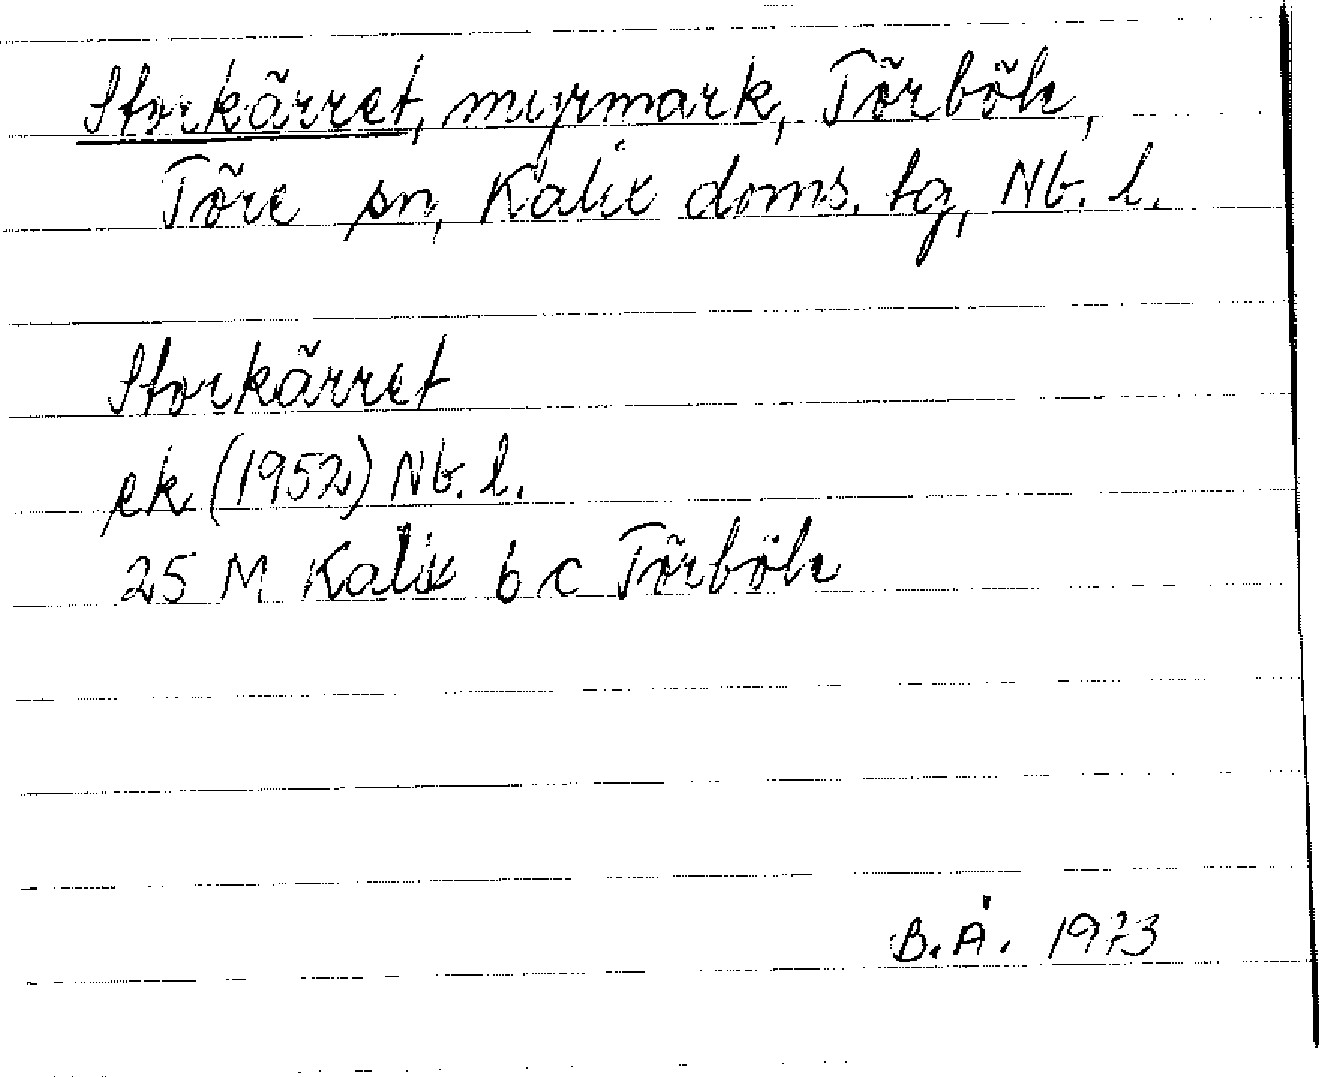 Storkärret, myrmark, Törböle,
Töre sn, Kalix doms. tg, Nb. l.
Storkärret
ek. (1952) Nb. l.
25 M Kalix 6 c Törböle
B. Å. 1973